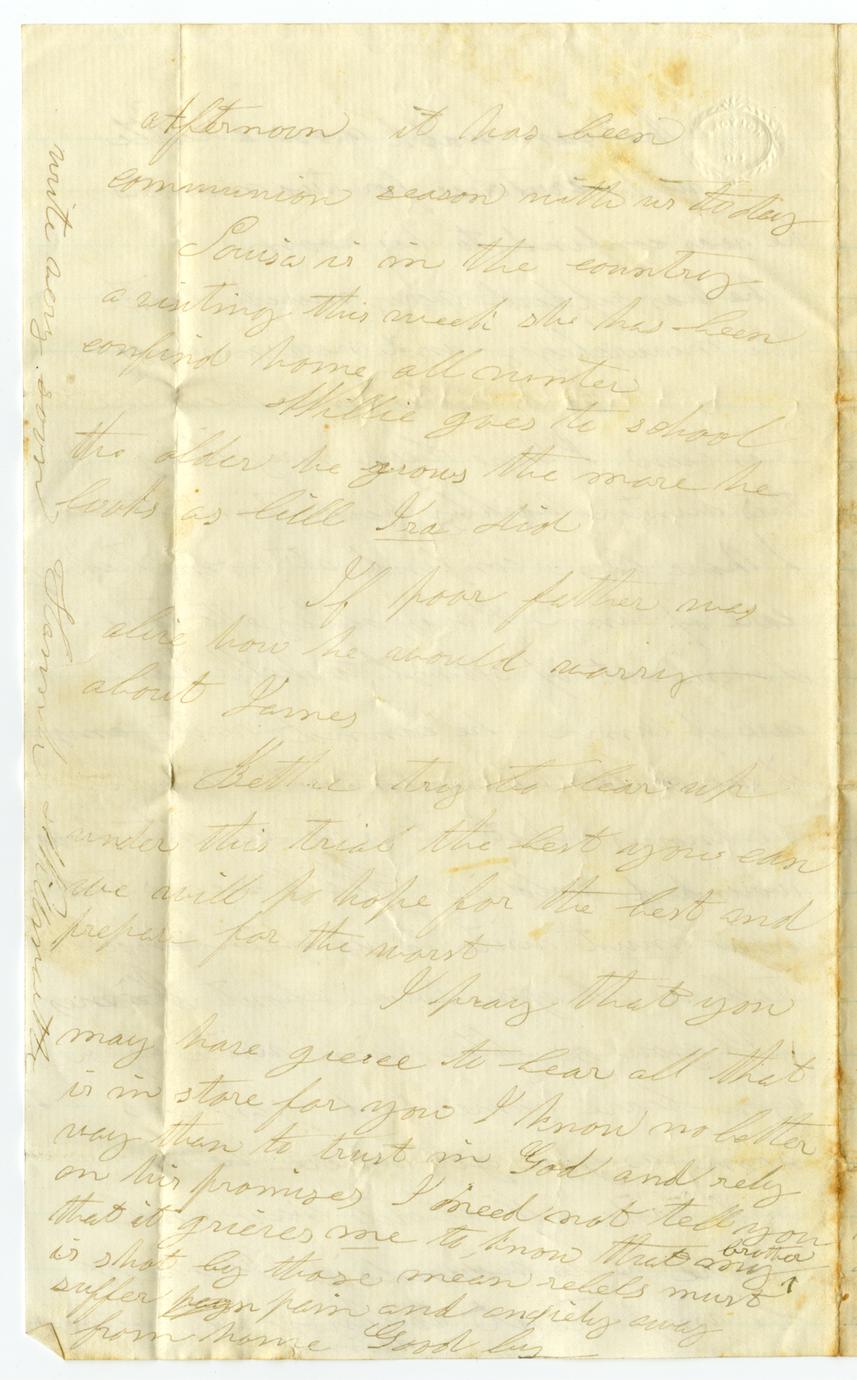 afternoon it has been
communion season with us to day
Louisa is in the country
a visiting this week she has been
confind home all winter
Willie goes to school
the older he grows the more he
looks as little Ira did
If poor father was
alive how he would worry
about James
Bettie try to bear up
under this trial the best you can
we will hope for the best and
prepare for the worst
I pray that you
may have griece to bear all that
is in store for you I know no better
way than to trust in God and rely
on his promises I need not tell you
that it grieves me to know that my brother
is shot by those mean rebels must
suffer pain and anxiety away
from home Good by
write very soon Hannah